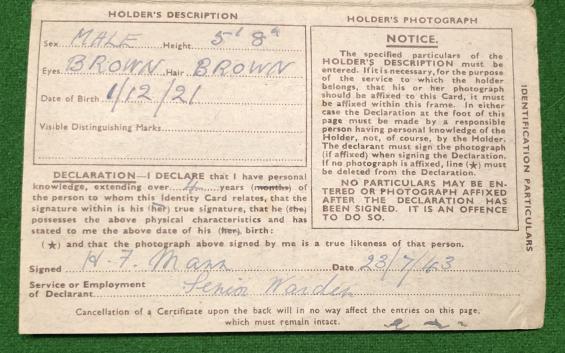 HOLDER'S DESCRIPTION
Sex MALE Height 5' 8"
Eyes BROWN Hair BROWN
Date of Birth 1/12/21
Visible Distinguishing Marks
DECLARATION—I DECLARE that I have personal
knowledge, extending over 4 years (months) of
the person to whom this Identity Card relates, that the
signature within is his (her) true signature, that he (she)
possesses the above physical characteristics and has
stated to me the above date of his (her) birth:
(★) and that the photograph above signed by me is a true likeness of that person.
Signed H. F. Mann Date 23/7/43
Service or Employment
of Declarant Senior Warden
Cancellation of a Certificate upon the back will in no way affect the entries on this page,
which must remain intact.
HOLDER'S PHOTOGRAPH
NOTICE.
The specified particulars of the
HOLDER'S DESCRIPTION must be
entered. If it is necessary, for the purpose
of the service to which the holder
belongs, that his or her photograph
should be affixed to this Card, it must
be affixed within this frame. In either
case the Declaration at the foot of this
page must be made by a responsible
person having personal knowledge of the
Holder, not, of course, by the Holder.
The declarant must sign the photograph
(if affixed) when signing the Declaration.
If no photograph is affixed, line (★) must
be deleted from the Declaration.
NO PARTICULARS MAY BE EN-
TERED OR PHOTOGRAPH AFFIXED
AFTER THE DECLARATION HAS
BEEN SIGNED. IT IS AN OFFENCE
TO DO SO.
IDENTIFICATION PARTICULARS